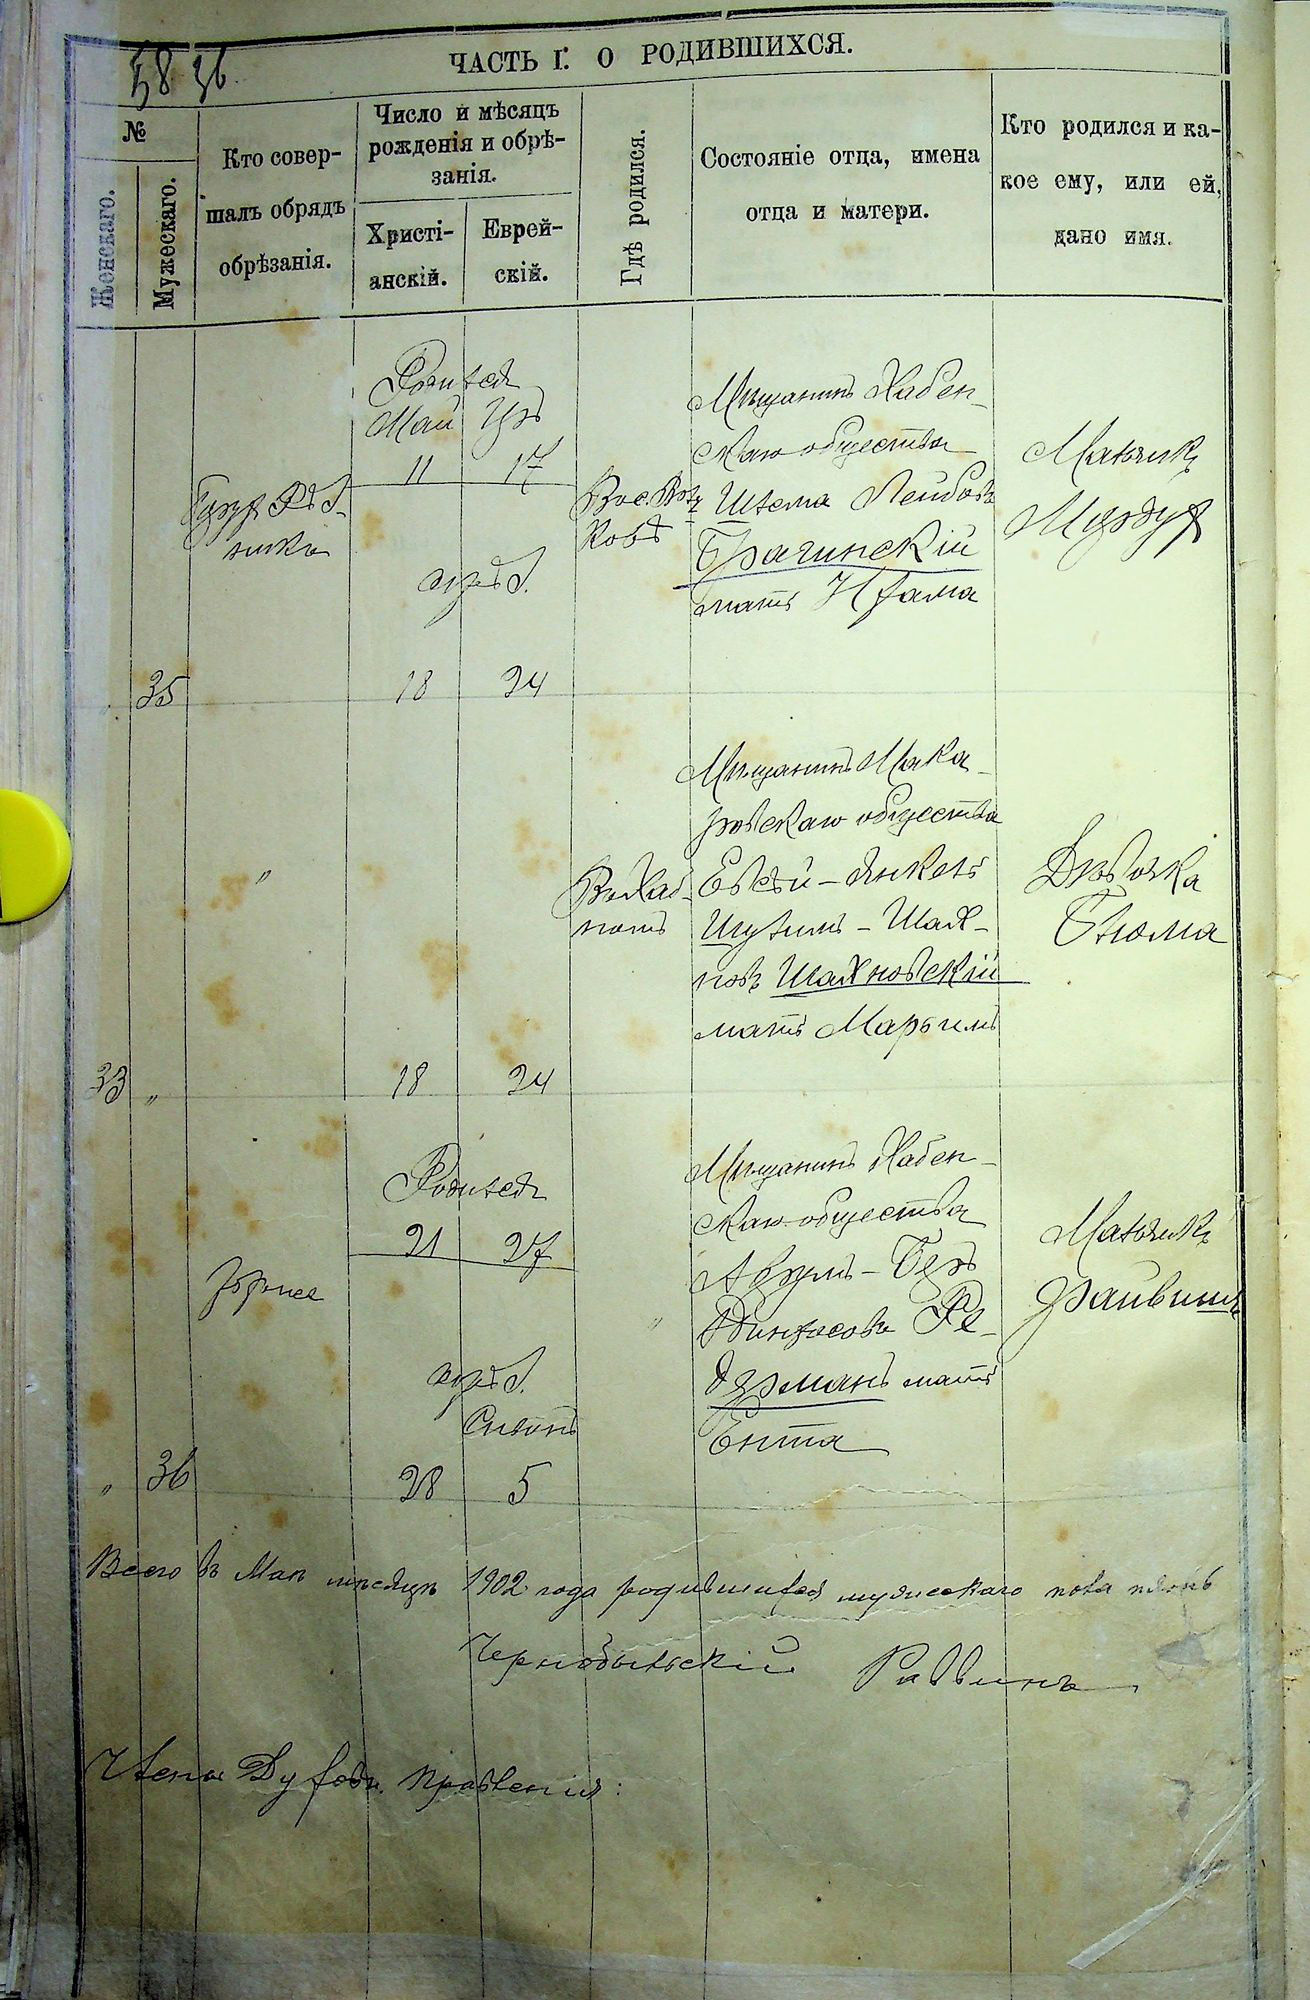 58 36
ЧАСТЬ I. О РОДИВШИХСЯ.
№
Женскаго.
Мужескаго.
Кто совер-
шалъ обрядъ
обрѣзанія.
Число и мѣсяцъ
рожденія и обрѣ-
занія.
Христі-
анскій.
Еврей-
скій.
Гдѣ родился.
Состояніе отца, имена
отца и матери.
Кто родился и ка-
кое ему, или ей,
дано имя.
35
Родился
Май Іръ
11 17
обрѣз.
18 24
Мѣщанинъ Хабен-
скаго общества
Шлема Лейбовъ
Брагинскій
мать
Мальчикъ
Мордух
33 „
„
18 24
Мѣщанинъ Мака-
ровскаго общества
Евсей-Янкель
Шулимъ-Шах-
новъ Шахновскій
мать
Дѣвочка
Блюма
„ 36
Родился
21 27
обрѣз.
Сивонъ
28 5
„
Мѣщанинъ Хабен-
скаго общества
Аврумъ-Беръ
Пинхасовъ Ле-
дерманъ мать
Ента
Мальчикъ
Файвишъ
Всего въ Маѣ мѣсяцѣ 1902 года родившихся мужескаго пола
Чернобыльскій Раввинъ
Члены Духовн. правленія: